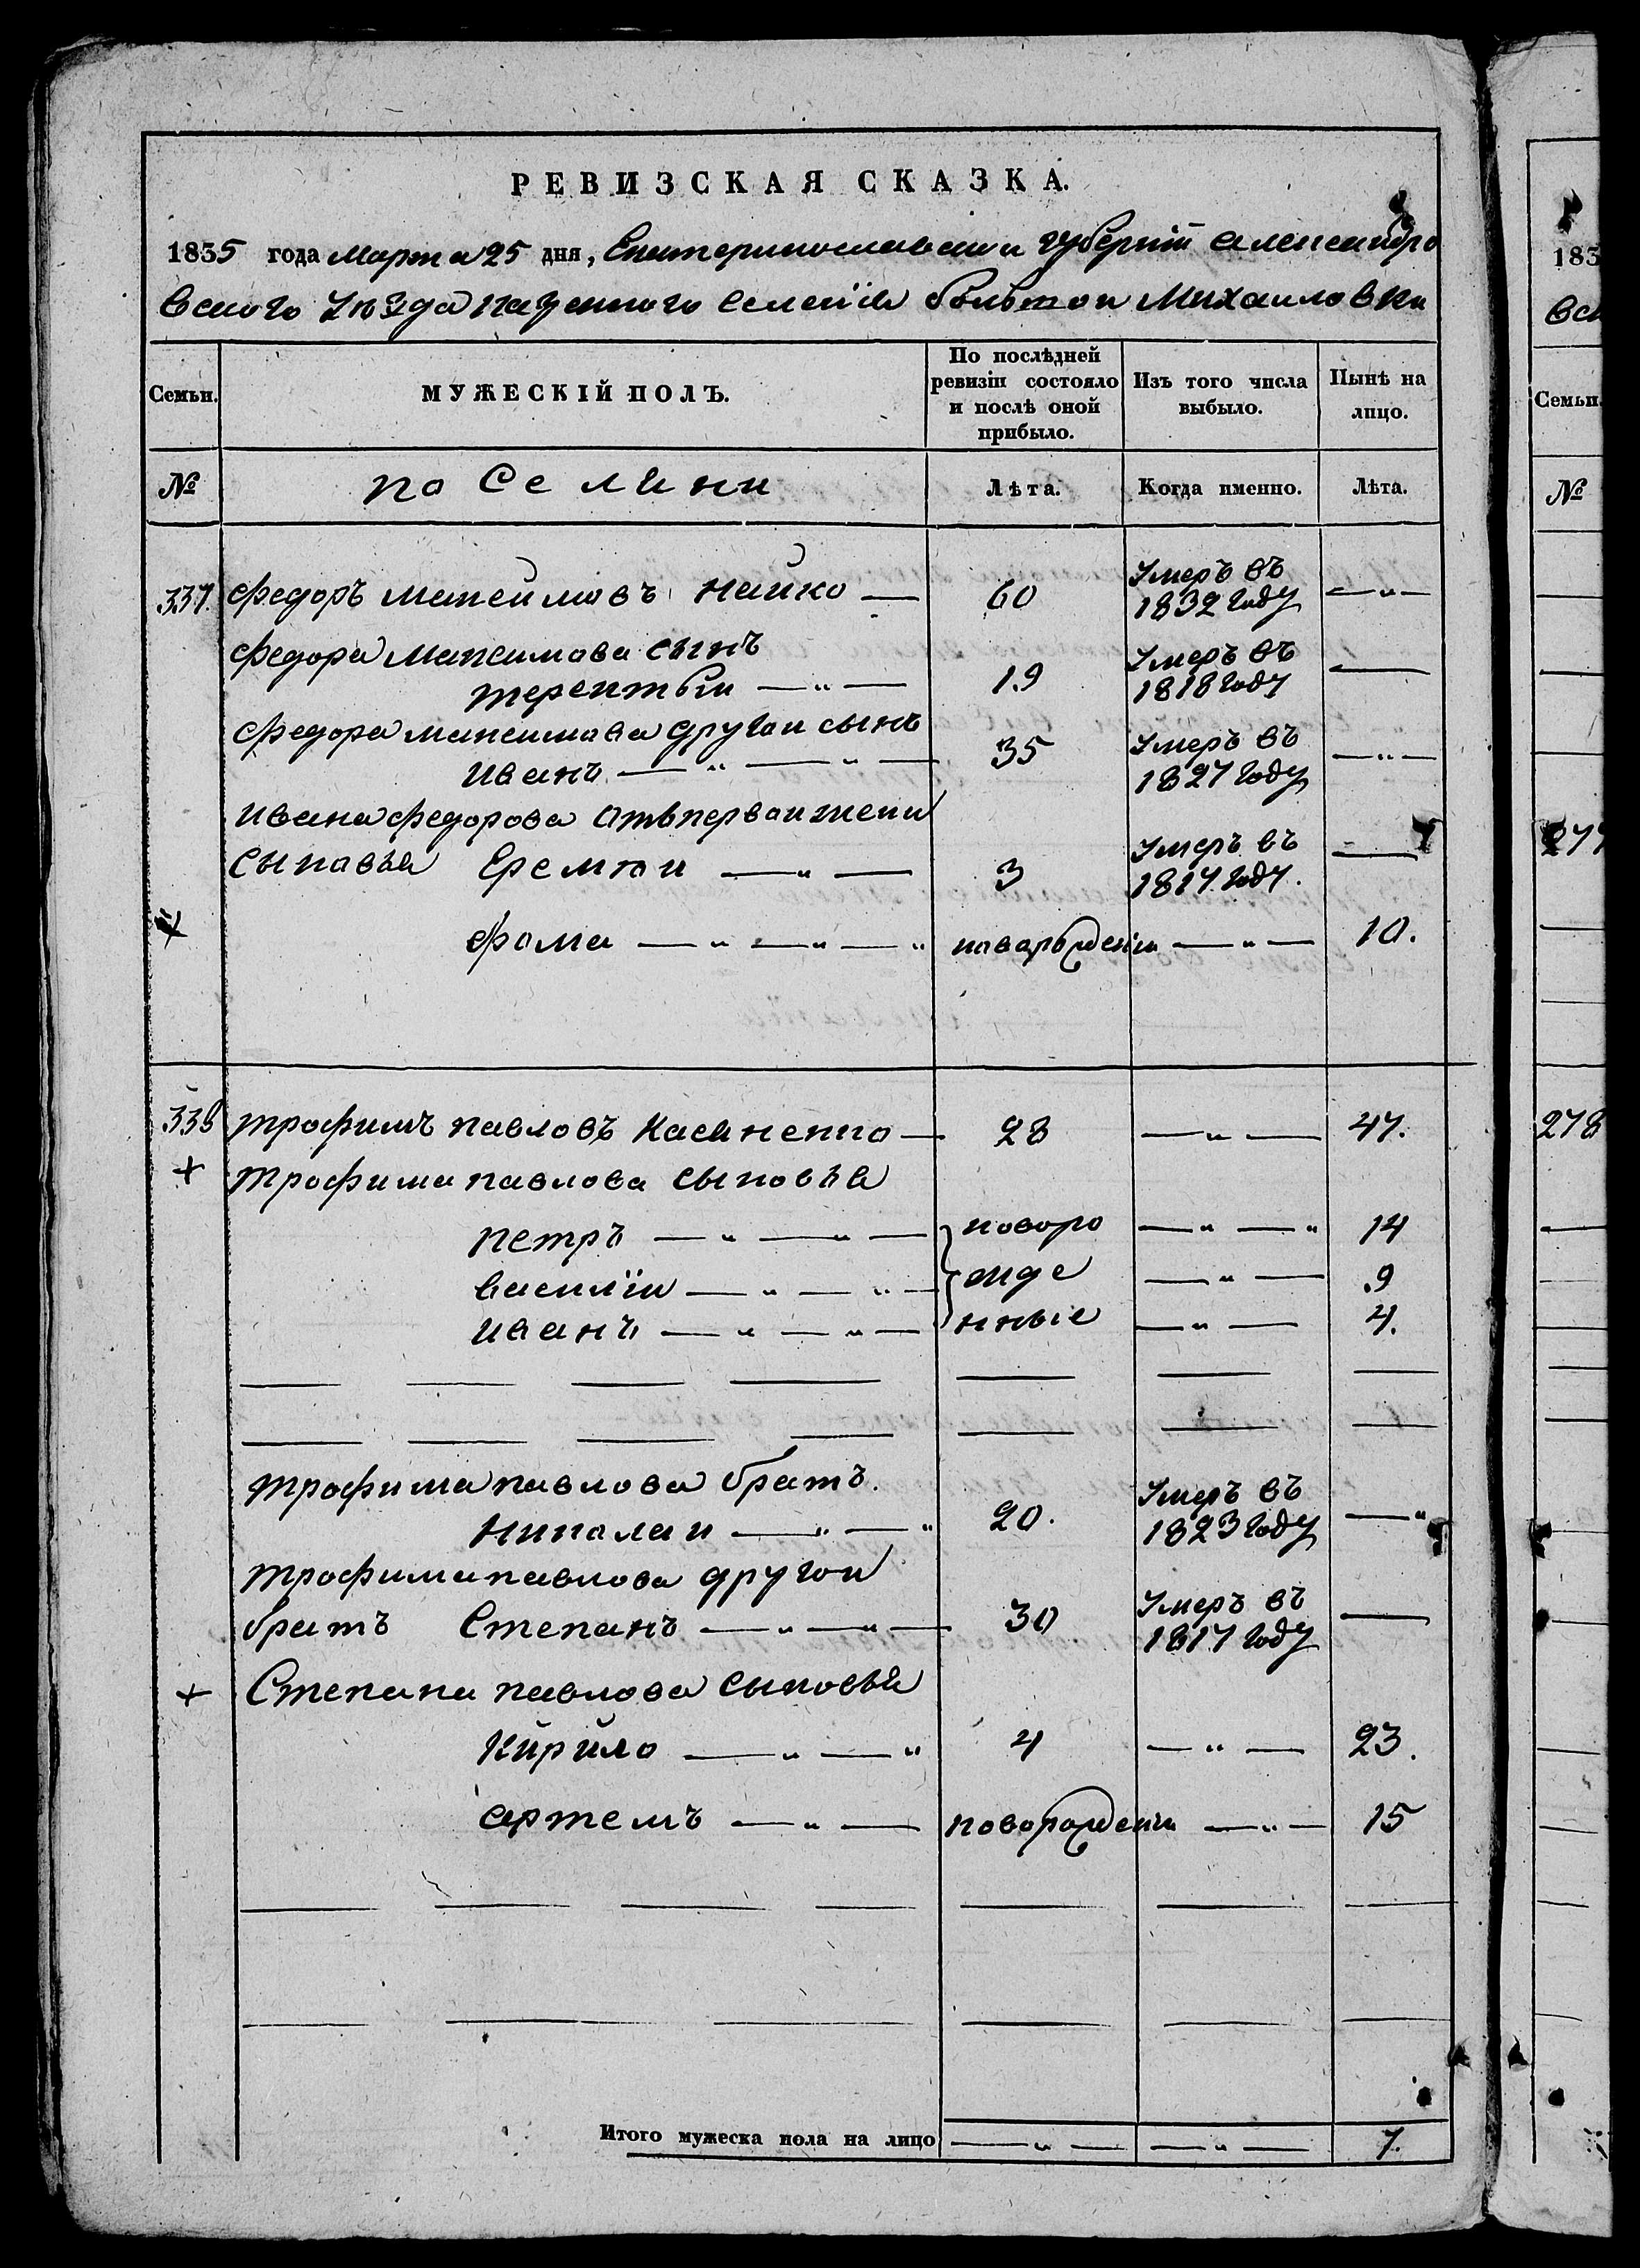 РЕВИЗСКАЯ СКАЗКА.
1835 года марта 25 дня, Екатеринославской губерніи александро
вского уезда казенного селенія большои Михаиловки
Семьи. МУЖЕСКІЙ ПОЛЪ. По послѣдней ревизіи состояло и послѣ оной прибыло. Изъ того числа выбыло. Нынѣ на лицо.
№ поселяни Лѣта. Когда именно. Лѣта.
337. федоръ максимовъ найко — 60 Умеръ въ 1832 году — „ —
федора максимова сынъ
терентьи — „ — 19 Умеръ въ 1818 году —
федора максимова другои сынъ
иванъ — „ — „ — 35 Умеръ въ 1827 году — „ —
ивана федорова отъ первои жени
сыновья Еремѣи — „ — 3 Умеръ въ 1817 году. —
+ фома — „ — „ — „ новорожденіи — „ — 10.
338 трофимъ павловъ Касяненко — 28 — „ — 47.
+ трофима павлова сыновья
петръ — „ — „ — новоро — „ — „ 14
василіи — „ — „ — жде — „ — 9
иванъ — „ — „ — нные — „ — 4.
трофима павлова братъ.
николаи — „ — „ 20. Умеръ въ 1823 году — „
трофима павлова другои
братъ Степанъ — „ — „ — 30 Умеръ въ 1817 году —
+ Степана павлова сыновья
Кирило — „ — „ 4 — „ — 23.
артемъ — „ — новорожденіи — „ — 15
Итого мужеска пола на лицо — „ — — „ — 7.
183
вск
Семьи.
№
277
278